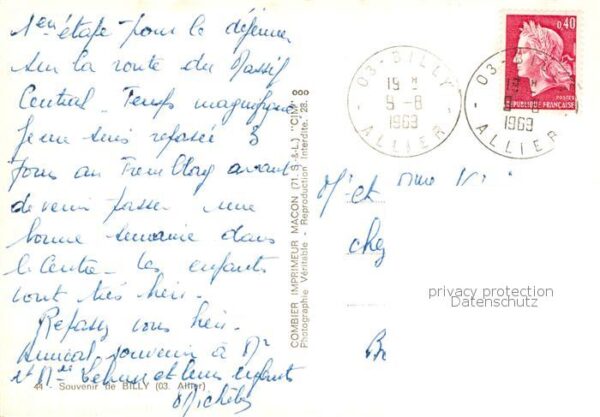 1ère étape pour le déjeuner
sur la route du Massif
Central. Temps magnifique
Je me suis reposée 3
jours au Tremblay avant
de venir passer une
bonne semaine dans
le Centre. les enfants
vont très bien.
Reposez vous bien.
Amical souvenir à Mr
et Mme et leurs enfants
Michèle
44 - Souvenir de BILLY (03. Allier)
COMBIER IMPRIMEUR MACON (71. S-&-L.) "CIM"
Photographie Véritable - Reproduction Interdite. 28.
03-BILLY
19 H
9-8
1969
ALLIER
03-BILLY
19 H
9-8
1969
ALLIER
0,40
POSTES
REPUBLIQUE FRANÇAISE
Mr et Mme
chez
privacy protection
Datenschutz